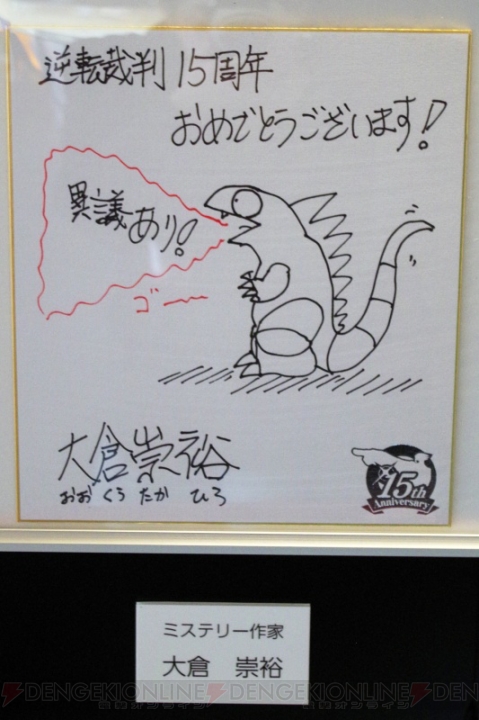 逆転裁判 15周年
おめでとうございます!
異議あり!
ゴーー
大倉崇裕
おおくらたかひろ
15th
Anniversary
ミステリー作家
大倉 崇裕
DENGEKIONLINE DENGEKIONLINE
電撃オンライン 電撃オンライン